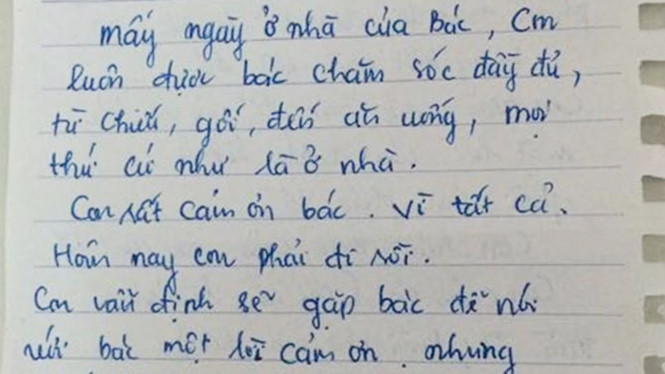 mấy ngày ở nhà của Bác, Con
luôn được bác chăm sóc đầy đủ,
từ chiếu, gối, đến ăn uống, mọi
thứ cứ như là ở nhà.
Con rất cảm ơn bác. Vì tất cả.
Hôm nay con phải đi rồi.
Con vẫn định sẽ gặp bác để nói
với bác một lời cảm ơn. nhưng